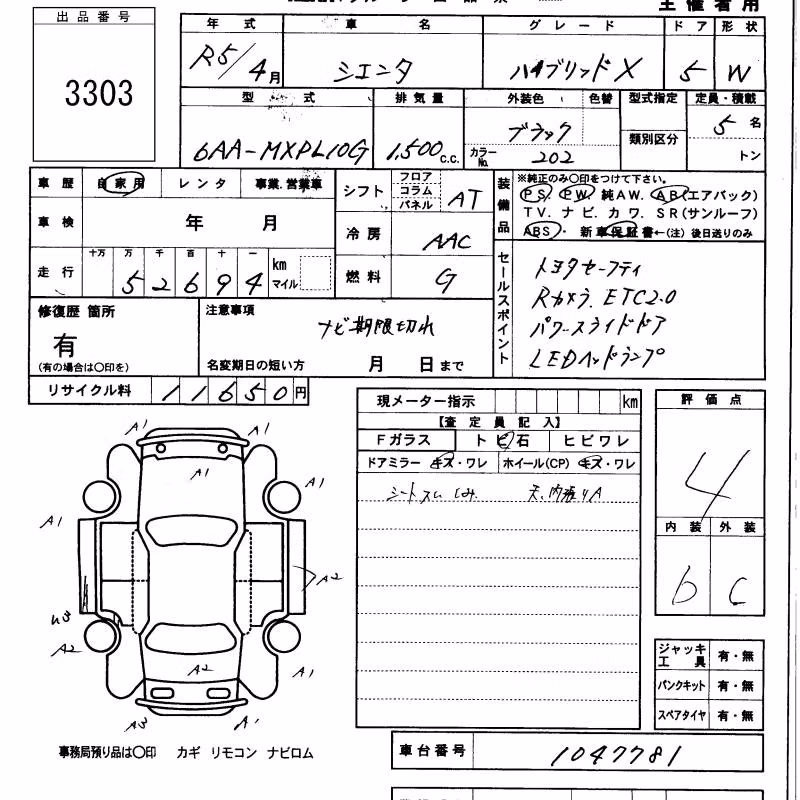 主催者用
出品番号
3303
年式 車名 グレード ドア 形状
R5/4月 シエンタ ハイブリッドX 5 W
型式 排気量 外装色 色替 型式指定 定員・積載
6AA-MXPL10G 1,500c.c. ブラック 類別区分 5名
カラーNo. 202 トン
車歴 自家用 レンタ 事業.営業車
車検 年 月
走行 十万 万 千 百 十 一 km マイル
52694
シフト フロア コラム パネル AT
冷房 AAC
燃料 G
装備品
※純正のみ〇印をつけて下さい。
PS. PW. 純AW. AB(エアバック)
TV. ナビ. カワ. SR(サンルーフ)
ABS・ 新車保証書←(注) 後日送りのみ
セールスポイント
トヨタセーフティ
Rカメラ. ETC2.0
パワースライドドア
LEDヘッドランプ
修復歴 箇所
有
(有の場合は〇印を)
注意事項
ナビ期限切れ
名変期日の短い方 月 日まで
リサイクル料 11650円
現メーター指示 km
【査定員記入】
Fガラス トビ石 ヒビワレ
ドアミラー キズ・ワレ ホイール(CP) キズ・ワレ
シートスレ しみ. 天.内張りA
評価点
4
内装 外装
b C
A1 A1
A1
A1 A1
A1
A2
A2
A2 A1
A3 A1
ジャッキ工具 有・無
パンクキット 有・無
スペアタイヤ 有・無
事務局預り品は〇印 カギ リモコン ナビロム
車台番号 1047781